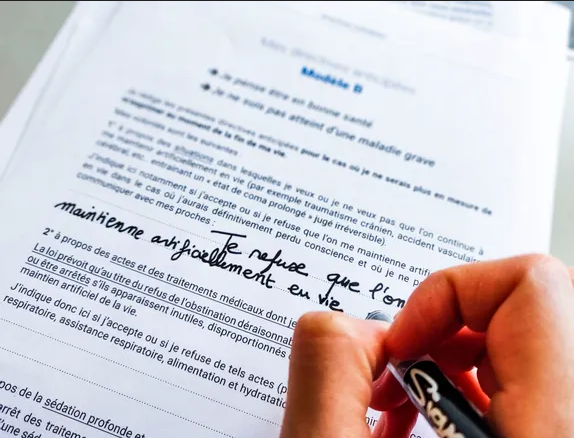 Mes directives anticipées
Modèle B
→ Je pense être en bonne santé
→ Je ne suis pas atteint d'une maladie grave
Je rédige les présentes directives anticipées pour le cas où je ne serais plus en mesure de
m'exprimer au moment de la fin de ma vie.
Mes volontés sont les suivantes :
1° à propos des situations dans lesquelles je veux ou je ne veux pas que l'on continue à
me maintenir artificiellement en vie (par exemple traumatisme crânien, accident vasculaire
cérébral, etc. entrainant un « état de coma prolongé » jugé irréversible).
J'indique ici notamment si j'accepte ou si je refuse que l'on me maintienne artifi
en vie dans le cas où j'aurais définitivement perdu conscience et où je ne p
communiquer avec mes proches :
Je refuse que l'on
maintienne artificiellement en vie
2° à propos des actes et des traitements médicaux dont je
La loi prévoit qu'au titre du refus de l'obstination déraisonnab
ou être arrêtés s'ils apparaissent inutiles, disproportionnés o
maintien artificiel de la vie.
J'indique donc ici si j'accepte ou si je refuse de tels actes (p
respiratoire, assistance respiratoire, alimentation et hydratati
opos de la sédation profonde et
arrêt des traitemen
d'une séd
Sign